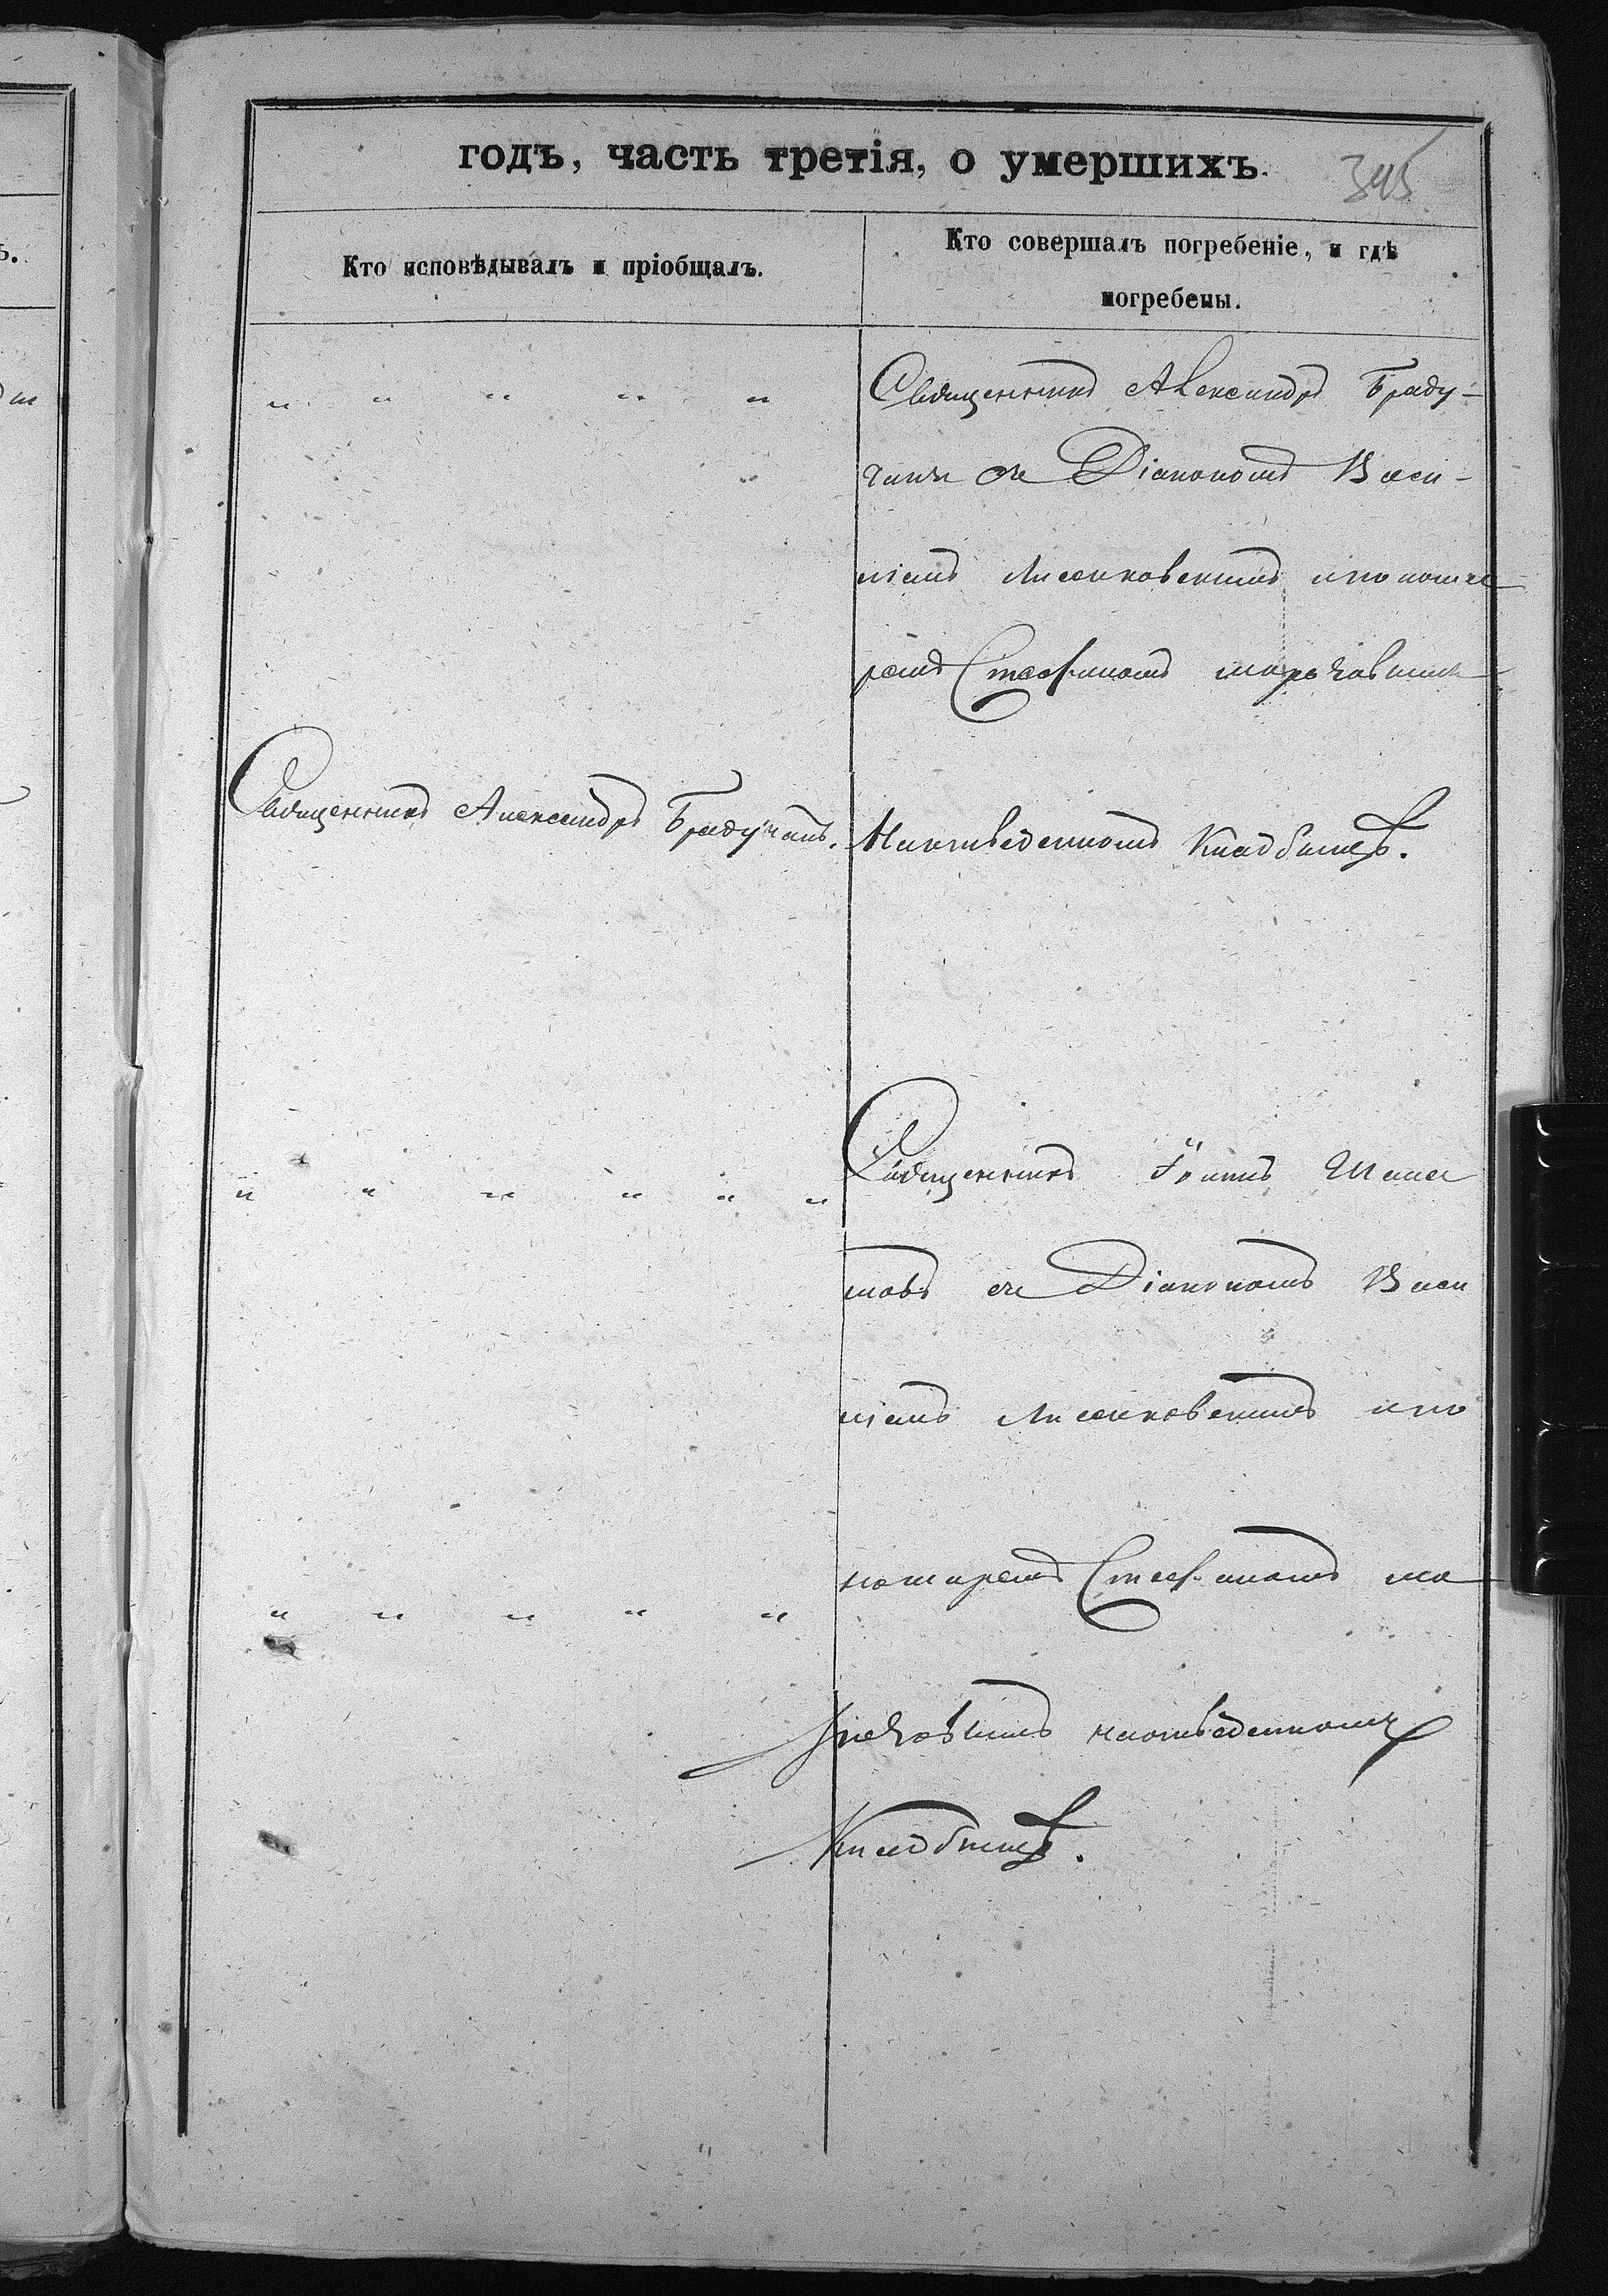 годъ, часть третія, о умершихъ.
345
Кто исповѣдывалъ и пріобщалъ.
Кто совершалъ погребеніе, и гдѣ
погребены.
" " " " "
Священникъ Александръ Браду-
чанъ съ Діакономъ Васи-
"
ліемъ Лисенковскимъ и пономе
ремъ Стефаномъ
Священникъ Александръ Брадучанъ.
Наотведенномъ Кладбищѣ.
" " " " " "
Священникъ Іоаннъ Шема
товъ съ Діакономъ Васи
ліемъ Лисенковскимъ и по
номаремъ Стефаномъ ма
" " " " "
наотведенномъ
Кладбищѣ.